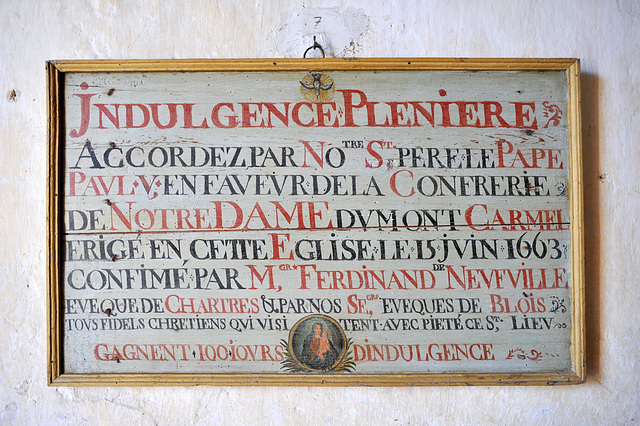 7
JNDULGENCE PLENIERE
ACCORDEZ, PAR NOTRE ST. PERE LE PAPE
PAUL·V·, EN FAVEVR·DE LA CONFRERIE
DE NOTRE DAME DV MONT CARMEL
ERIGÉ EN CETTE EGLISE·LE·15·JVIN·1663·
CONFIMÉ·PAR M.GR FERDINAND DE NEVFVILLE
EVEQUE DE CHARTRES & PAR NOS SE.GRS EVEQUES DE BLOIS
TOVS FIDELS CHRETIENS QVI VISITENT·AVEC PIETÉ CE ST. LIEV
GAGNENT·100·IOVRS DINDULGENCE